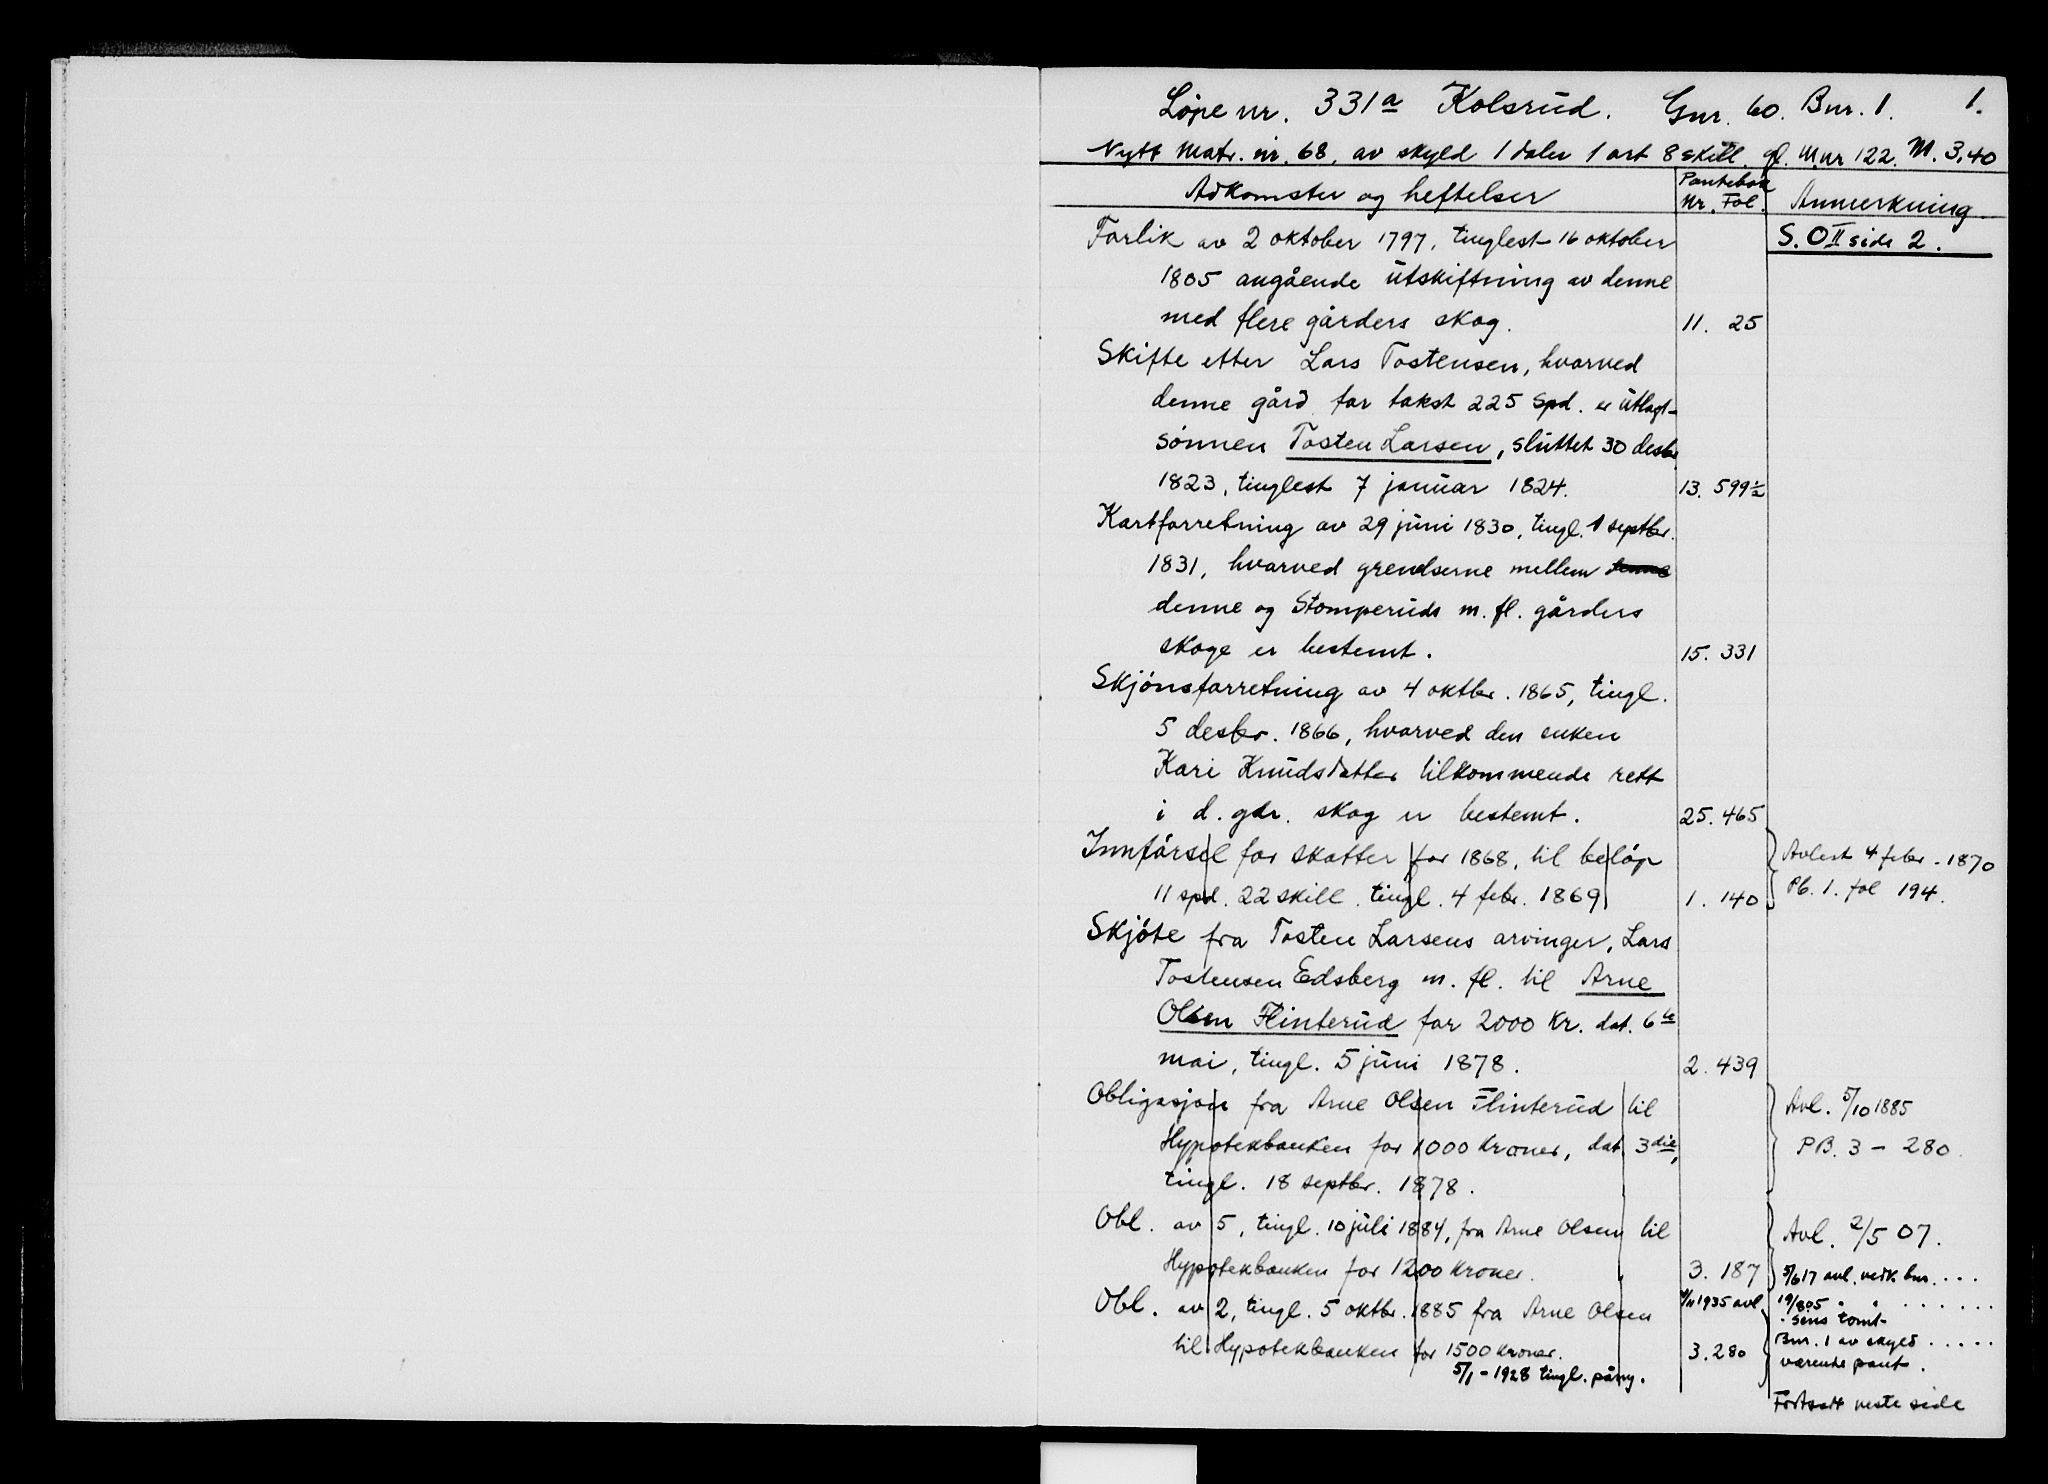 Løpe nr. 331a Kolsrud. Gnr. 60. Bnr. 1. 1.
Nytt Matr. nr. 68, av skyld 1 daler 1 ort 8 skill. gl. M.nr 122. M. 3,40
Adkomster og heftelser Pantebok Nr. Fol. Anmerkning
Forlik av 2 oktober 1797, tinglest 16 oktober S. O II side 2.
1805 angående utskiftning av denne
med flere gårders skog. 11. 25
Skifte etter Lars Tostensen, hvorved
denne gård for takst 225 Spd. er utlagt
sønnen Tosten Larsen, sluttet 30 desbr
1823, tinglest 7 januar 1824. 13. 599½
Kartforretning av 29 juni 1830, tingl. 1 septbr.
1831, hvorved grendserne mellem denne
denne og Stomperuds m. fl. gårders
skoge er bestemt. 15. 331
Skjønsforretning av 4 oktbr. 1865, tingl.
5 desbr. 1866, hvorved den enken
Kari Knudsdatter tilkommende rett
i d. gdr. skog er bestemt. 25. 465
Innførsel for skatter for 1868, til beløp Avlest 4 febr. 1870
11 spd. 22 skill. tingl. 4 febr. 1869 1. 140 Pb. 1. fol 194.
Skjøte fra Tosten Larsens arvinger, Lars
Tostensen Edsberg m. fl. til Arne
Olsen Flinterud for 2000 Kr. dat. 6te
mai, tingl. 5 juni 1878. 2. 439
Obligasjon fra Arne Olsen Flinterud til Avl. 5/10 1885
Hypotekbanken for 1000 kroner, dat. 3die, PB. 3 - 280.
tingl. 18 septbr. 1878.
Obl. av 5, tingl. 10 juli 1884, fra Arne Olsen til Avl. 2/5 07.
Hypotekbanken for 1200 kroner. 3. 187 5/6 17 avl. vedk. bnr. ....
Obl. av 2, tingl. 5 oktbr. 1885 fra Arne Olsen 1935 avl
til Hypotekbanken for 1500 kroner. 3. 280 Bnr. 1 av skyld .....
5/1 - 1928 tingl. påny. varende pant.
Fortsatt neste side